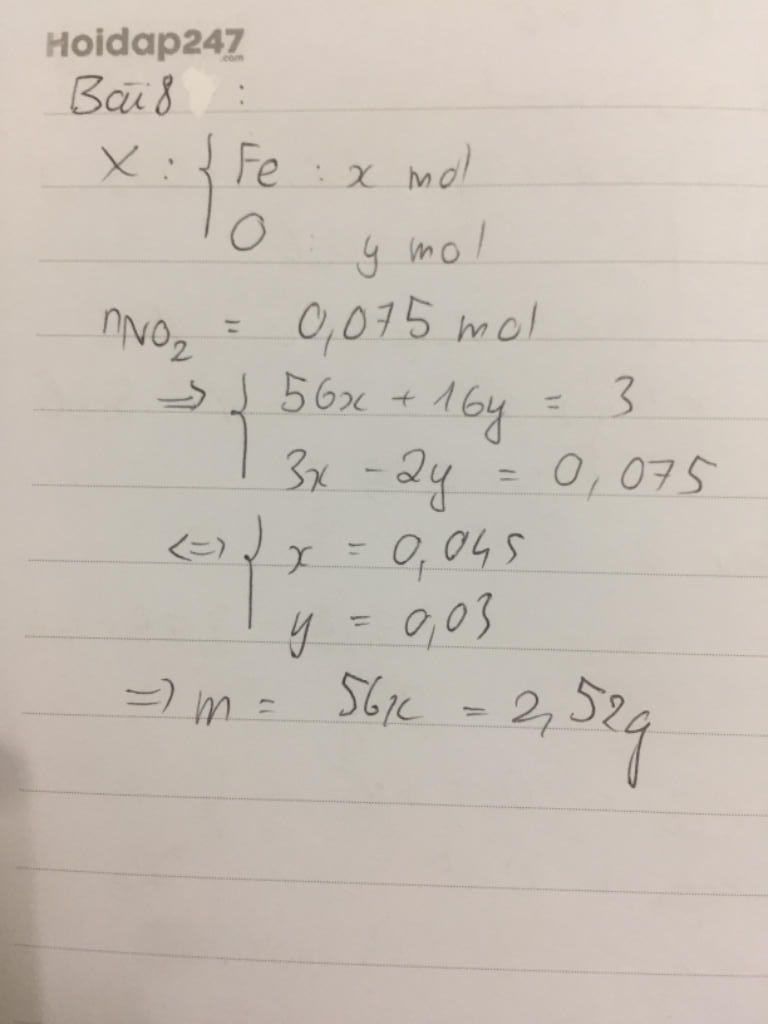 Hoidap247
.com
Bài 8 :
X : { Fe : x mol
O : y mol
nNO₂ = 0,075 mol
=> { 56x + 16y = 3
3x - 2y = 0,075
<=> { x = 0,045
y = 0,03
=> m = 56x = 2,52g